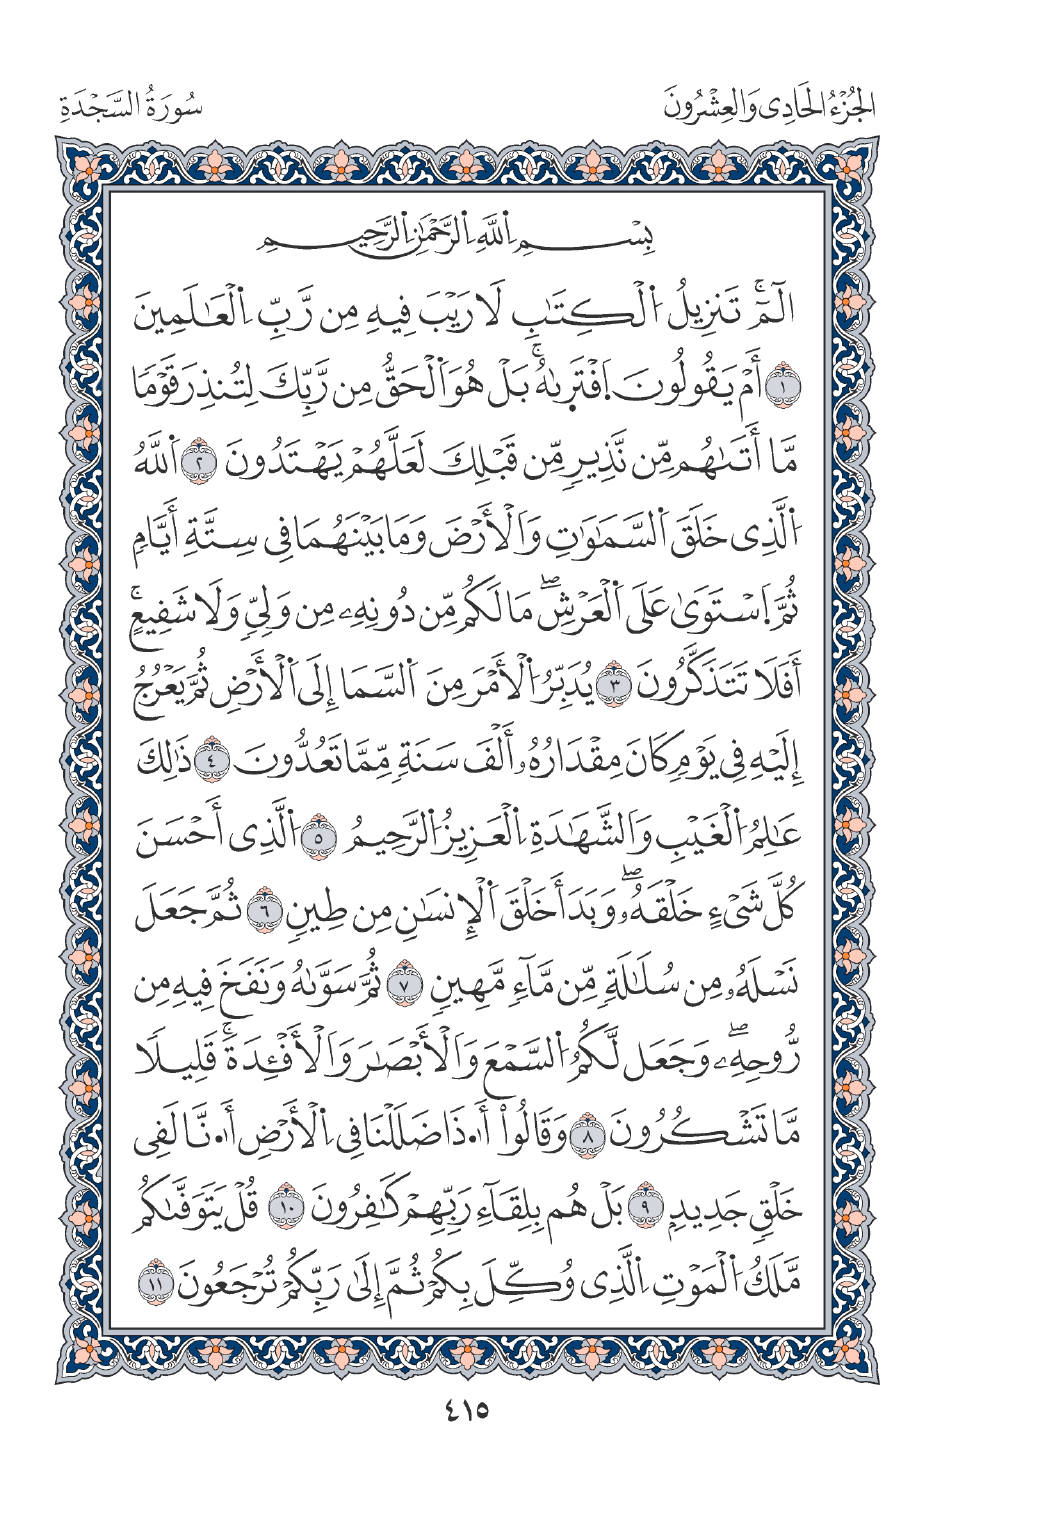 الجُزْءُ الحَادِى وَالعِشْرُونَ
سُورَةُ السَّجْدَةِ
بِسْمِ اِ۬للَّهِ اِ۬لرَّحْمَٰنِ اِ۬لرَّحِيمِ
الٓمِّٓۚ تَنزِيلُ اُ۬لْكِتَٰبِ لَا رَيْبَ فِيهِ مِن رَّبِّ اِ۬لْعَٰلَمِينَ
١ أَمْ يَقُولُونَ اَ۪فْتَرِىٰهُۚ بَلْ هُوَ اَ۬لْحَقُّ مِن رَّبِّكَ لِتُنذِرَ قَوْمٗا
مَّا أَتَىٰهُم مِّن نَّذِيرٖ مِّن قَبْلِكَ لَعَلَّهُمْ يَهْتَدُونَ ٢ اَ۬للَّهُ
اُ۬لَّذِى خَلَقَ اَ۬لسَّمَٰوَٰتِ وَاَ۬لْأَرْضَ وَمَا بَيْنَهُمَا فِى سِتَّةِ أَيَّامٖ
ثُمَّ اَ۪سْتَوَىٰ عَلَى اَ۬لْعَرْشِۖ مَا لَكُم مِّن دُونِهِۦ مِن وَلِىّٖ وَلَا شَفِيعٍۚ
أَفَلَا تَتَذَكَّرُونَ ٣ يُدَبِّرُ اُ۬لْأَمْرَ مِنَ اَ۬لسَّمَا إِلَى اَ۬لْأَرْضِ ثُمَّ يَعْرُجُ
إِلَيْهِ فِى يَوْمٖ كَانَ مِقْدَارُهُۥ أَلْفَ سَنَةٖ مِّمَّا تَعُدُّونَ ٤ ذَٰلِكَ
عَٰلِمُ اُ۬لْغَيْبِ وَاَ۬لشَّهَٰدَةِ اِ۬لْعَزِيزُ اُ۬لرَّحِيمُ ٥ اُ۬لَّذِى أَحْسَنَ
كُلَّ شَىْءٍ خَلْقَهُۥۖ وَبَدَأَ خَلْقَ اَ۬لْإِنسَٰنِ مِن طِينٖ ٦ ثُمَّ جَعَلَ
نَسْلَهُۥ مِن سُلَٰلَةٖ مِّن مَّآءٖ مَّهِينٖ ٧ ثُمَّ سَوَّىٰهُ وَنَفَخَ فِيهِ مِن
رُّوحِهِۦۖ وَجَعَل لَّكُمُ اُ۬لسَّمْعَ وَاَ۬لْأَبْصَٰرَ وَاَ۬لْأَفْـِٔدَةَۚ قَلِيلٗا
مَّا تَشْكُرُونَ ٨ وَقَالُواْ أَ.ذَا ضَلَلْنَا فِى اِ۬لْأَرْضِ أَ.نَّا لَفِى
خَلْقٖ جَدِيدِۭ ٩ بَلْ هُم بِلِقَآءِ رَبِّهِمْ كَٰفِرُونَ ١٠ قُلْ يَتَوَفَّىٰكُم
مَّلَكُ اُ۬لْمَوْتِ اِ۬لَّذِى وُكِّلَ بِكُمْ ثُمَّ إِلَىٰ رَبِّكُمْ تُرْجَعُونَ ١١
٤١٥